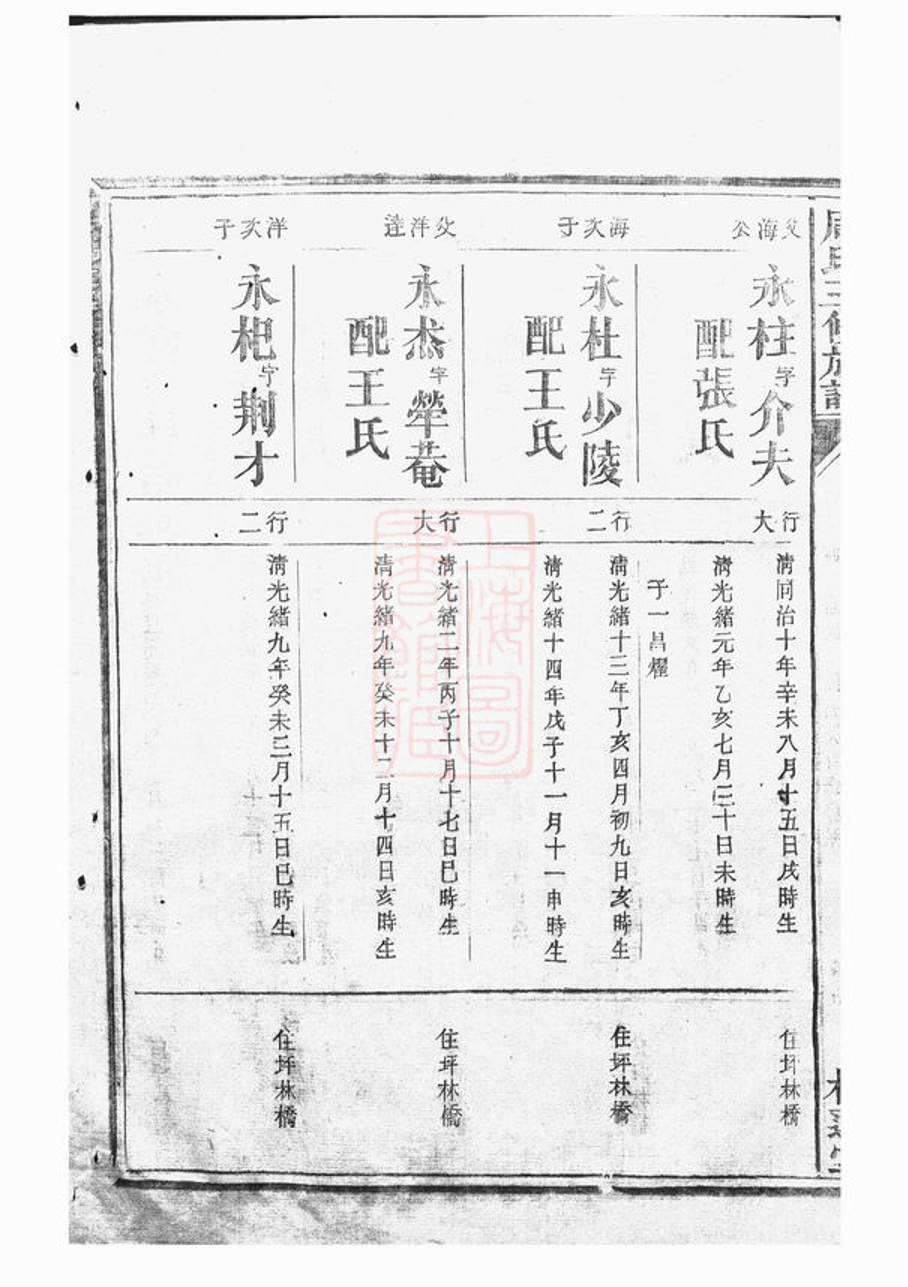 父海公
永柱字介夫
配張氏
行大
清同治十年辛未八月廿五日戌時生
清光緒元年乙亥七月三十日未時生
子一昌燿
住坪林橋
海次子
永杜字少陵
配王氏
行二
清光緒十三年丁亥四月初九日亥時生
清光緒十四年戊子十一月十一申時生
住坪林橋
父洋達
永杰字犖菴
配王氏
行大
清光緒二年丙子十月十七日巳時生
清光緒九年癸未十二月十四日亥時生
住坪林橋
洋次子
永杞字荆才
行二
清光緒九年癸未三月十五日巳時生
住坪林橋
上海圖書館藏